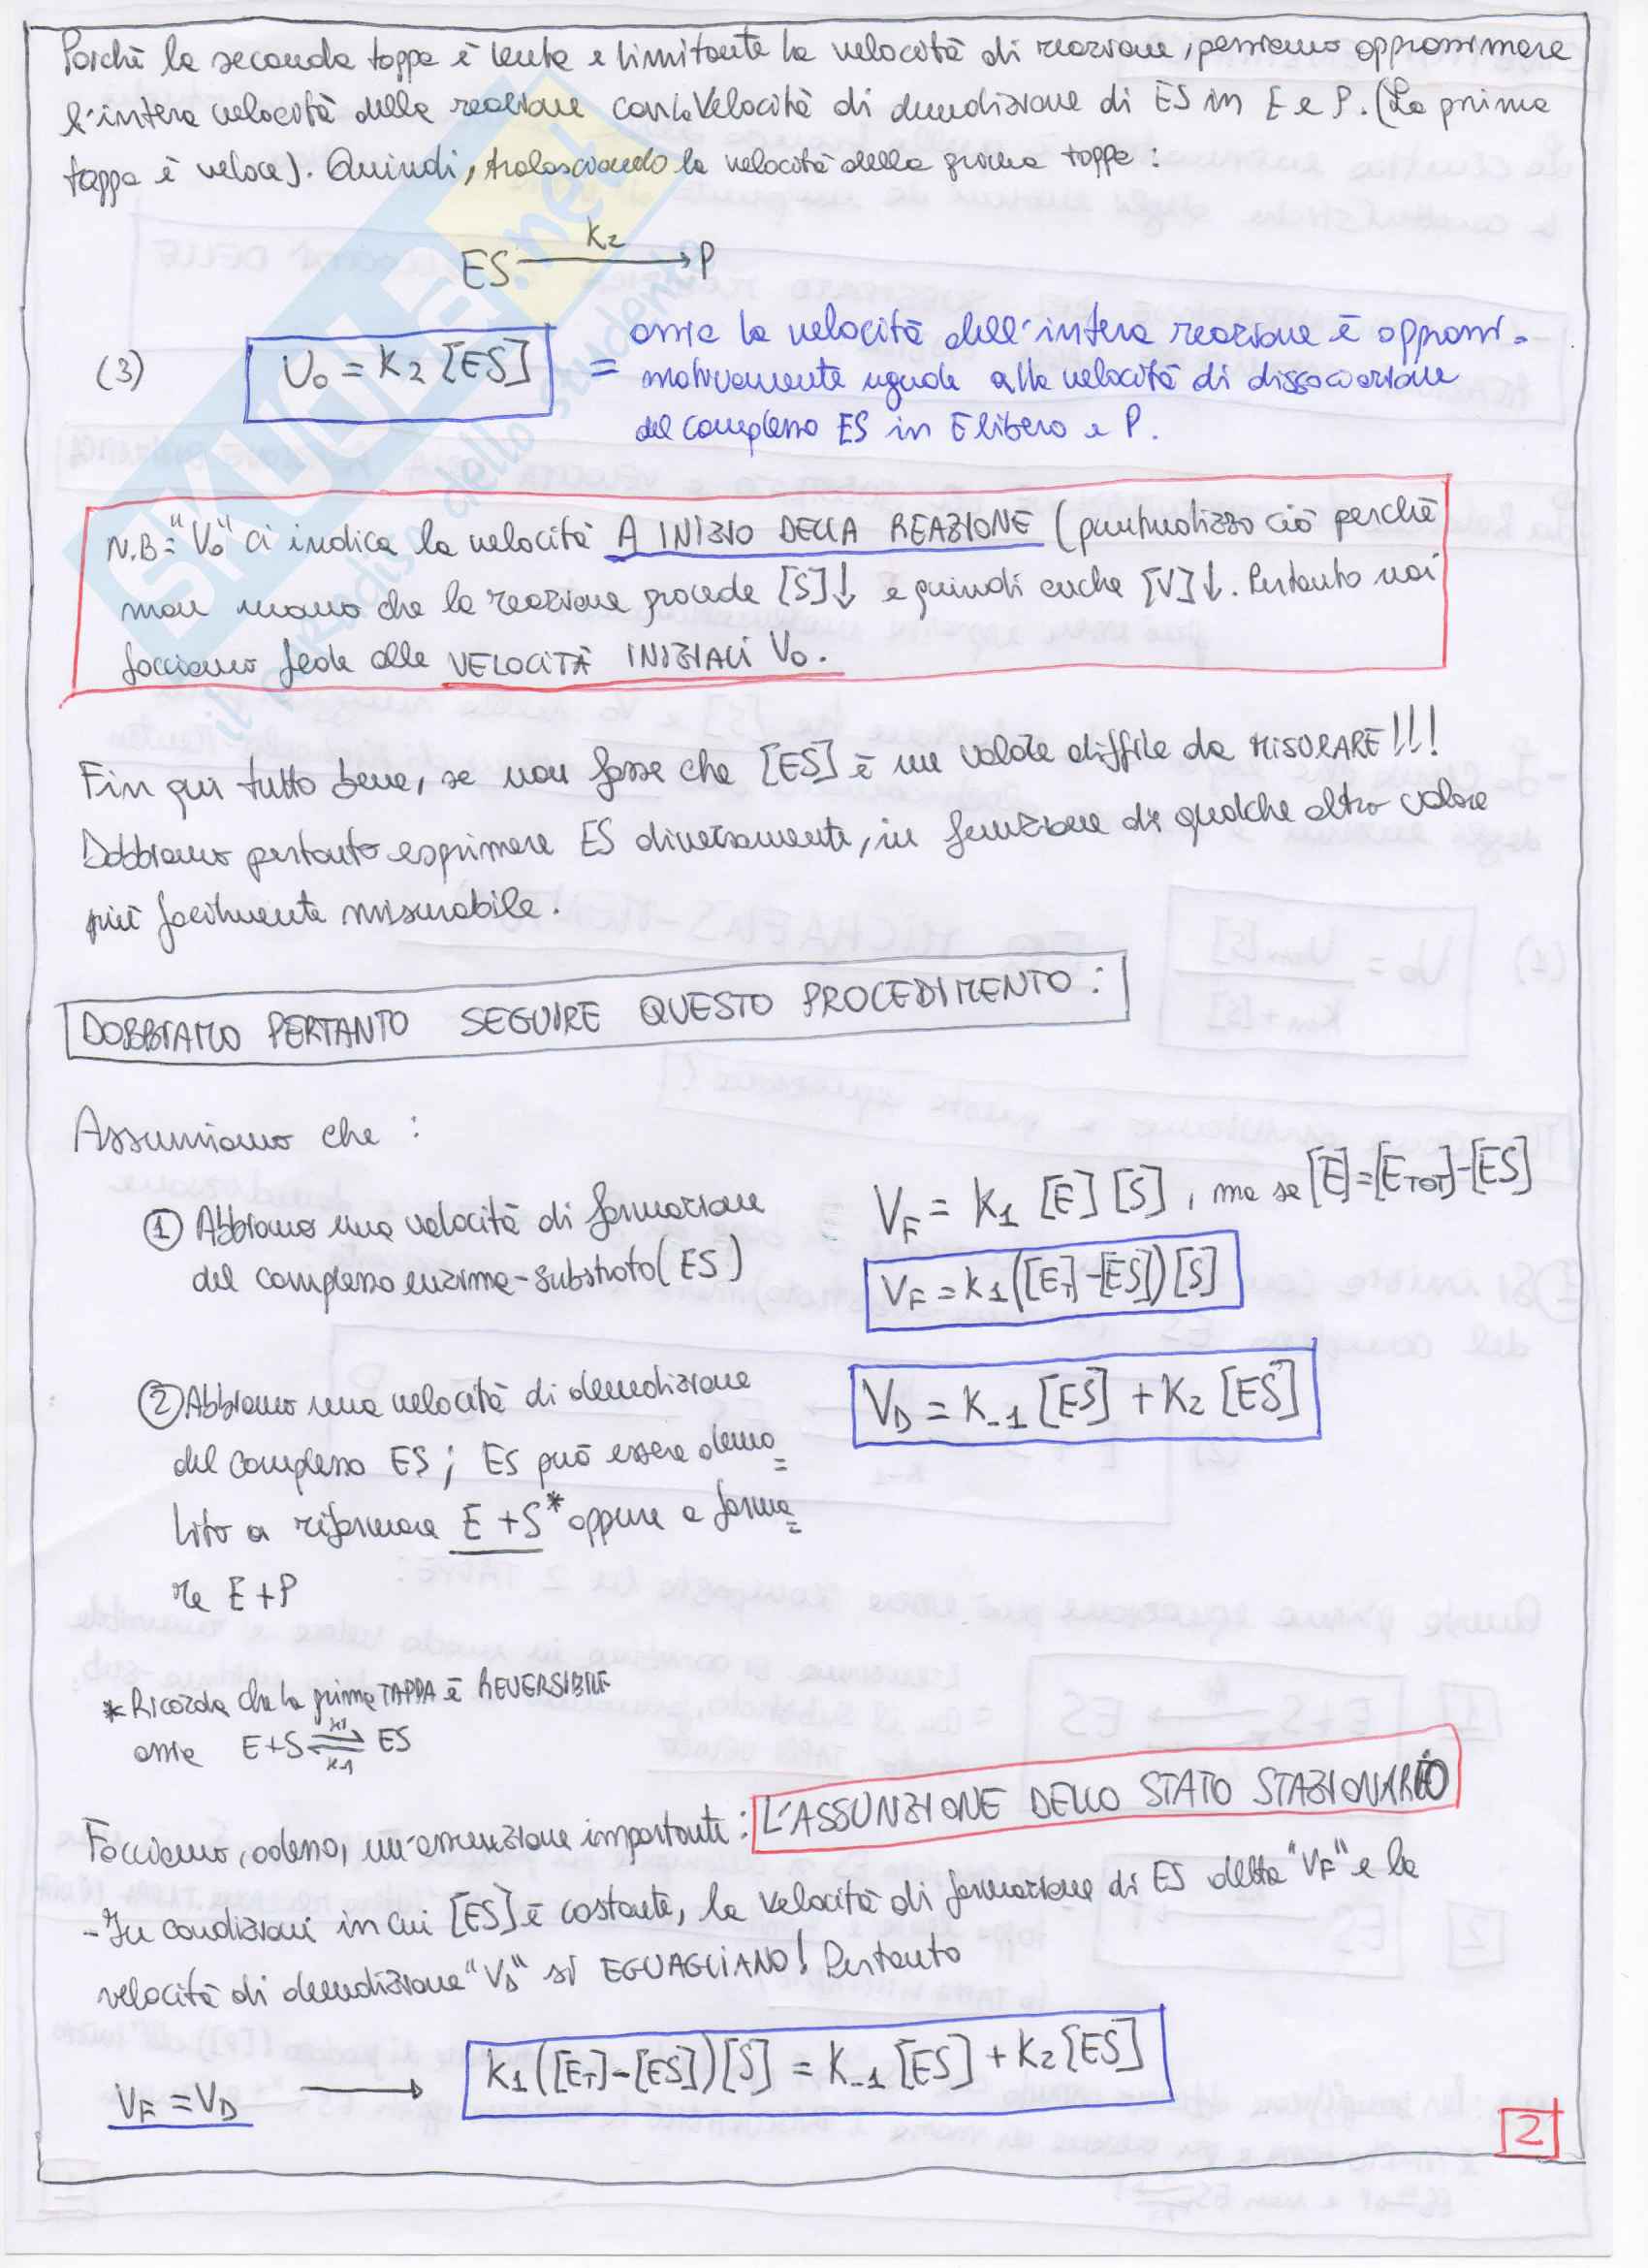 Poiché la seconda tappa è lenta e limitante la velocità di reazione, possiamo approssimare
l'intera velocità della reazione con la velocità di demolizione di ES in E e P. (La prima
tappa è veloce). Quindi, tralasciando la velocità della prima tappa :
ES —K2→ P
(3) V0 = K2 [ES] = ossia la velocità dell'intera reazione è approssi-
mativamente uguale alla velocità di dissociazione
del complesso ES in E libero e P.
N.B = "V0" ci indica la velocità A INIZIO DELLA REAZIONE (puntualizzo ciò perchè
man mano che la reazione procede [S]↓ e quindi anche [V]↓. Pertanto noi
facciamo fede alle VELOCITÀ INIZIALI V0.
Fin qui tutto bene, se non fosse che [ES] è un valore diffile da MISURARE!!!
Dobbiamo pertanto esprimere ES diversamente, in funzione di qualche altro valore
più facilmente misurabile.
DOBBIAMO PERTANTO SEGUIRE QUESTO PROCEDIMENTO :
Assumiamo che :
① Abbiamo una velocità di formazione
del complesso enzima-substrato (ES)
VF = K1 [E] [S], ma se [E]=[ETOT]-[ES]
VF = K1([ET]-[ES])[S]
② Abbiamo una velocità di demolizione
del complesso ES; ES può essere demo=
lito a riformare E + S* oppure a forma=
re E+P
VD = K-1 [ES] + K2 [ES]
* Ricorda che la prima TAPPA è REVERSIBILE
ossia E+S ⇌ ES
K1
K-1
Facciamo, adesso, un'assunzione importante : L'ASSUNZIONE DELLO STATO STAZIONARIO
- In condizioni in cui [ES] è costante, la velocità di formazione di ES detta "VF" e la
velocità di demolizione "VD" si EGUAGLIANO! Pertanto
VF = VD → K1([ET]-[ES])[S] = K-1 [ES] + K2 [ES]
2
SKUOLA.net
il paradiso dello studente